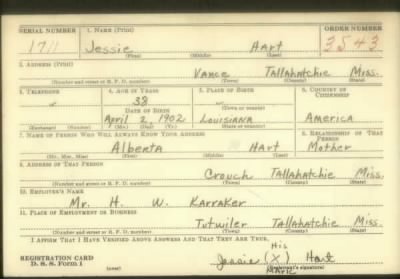 SERIAL NUMBER 1. NAME (Print) ORDER NUMBER
1711 Jessie Hart 3543
(First) (Middle) (Last)
2. ADDRESS (Print)
Vance Tallahatchie Miss.
(Number and street or R. F. D. number) (Town) (County) (State)
3. TELEPHONE 4. AGE IN YEARS 5. PLACE OF BIRTH 6. COUNTRY OF CITIZENSHIP
38
DATE OF BIRTH (Town or county)
April 2 1902 Louisiana America
(Exchange) (Number) (Mo.) (Day) (Yr.) (State or country)
7. NAME OF PERSON WHO WILL ALWAYS KNOW YOUR ADDRESS 8. RELATIONSHIP OF THAT PERSON
Alberta Hart Mother
(Mr., Mrs., Miss) (First) (Middle) (Last)
9. ADDRESS OF THAT PERSON
Crouch Tallahatchie Miss.
(Number and street or R. F. D. number) (Town) (County) (State)
10. EMPLOYER'S NAME
Mr. H. W. Karraker
11. PLACE OF EMPLOYMENT OR BUSINESS
Tutwiler Tallahatchie Miss.
(Number and street or R. F. D. number) (Town) (County) (State)
I AFFIRM THAT I HAVE VERIFIED ABOVE ANSWERS AND THAT THEY ARE TRUE.
His
Jessie (X) Hart
REGISTRATION CARD Mark
D. S. S. Form 1 (over) (Registrant's signature)